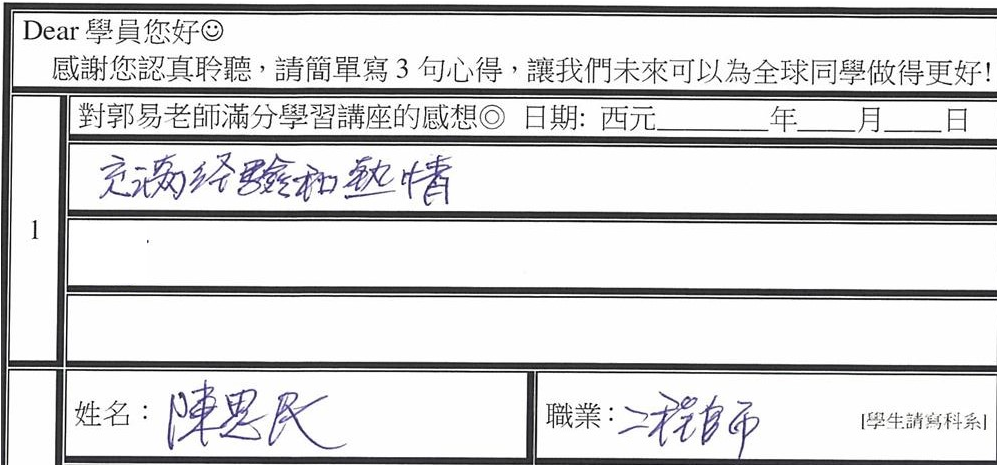 Dear 學員您好☺
感謝您認真聆聽，請簡單寫 3 句心得，讓我們未來可以為全球同學做得更好!
1
對郭易老師滿分學習講座的感想◎ 日期: 西元________年____月____日
充滿经驗和熱情
姓名：陳思民
職業：工程師 [學生請寫科系]